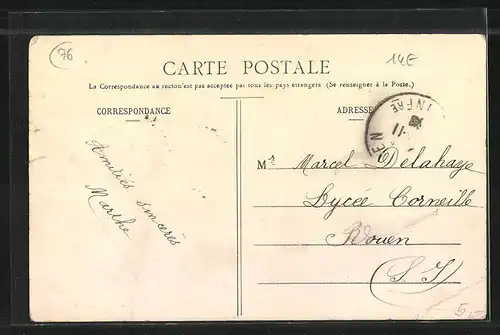 76
14E
CARTE POSTALE
La Correspondance au recto n'est pas acceptée par tous les pays étrangers (Se renseigner à la Poste.)
CORRESPONDANCE
ADRESSE
Amitiés sincères
Marthe
Mr Marcel Delahaye
Lycée Corneille
Rouen
(S. I)
5,-